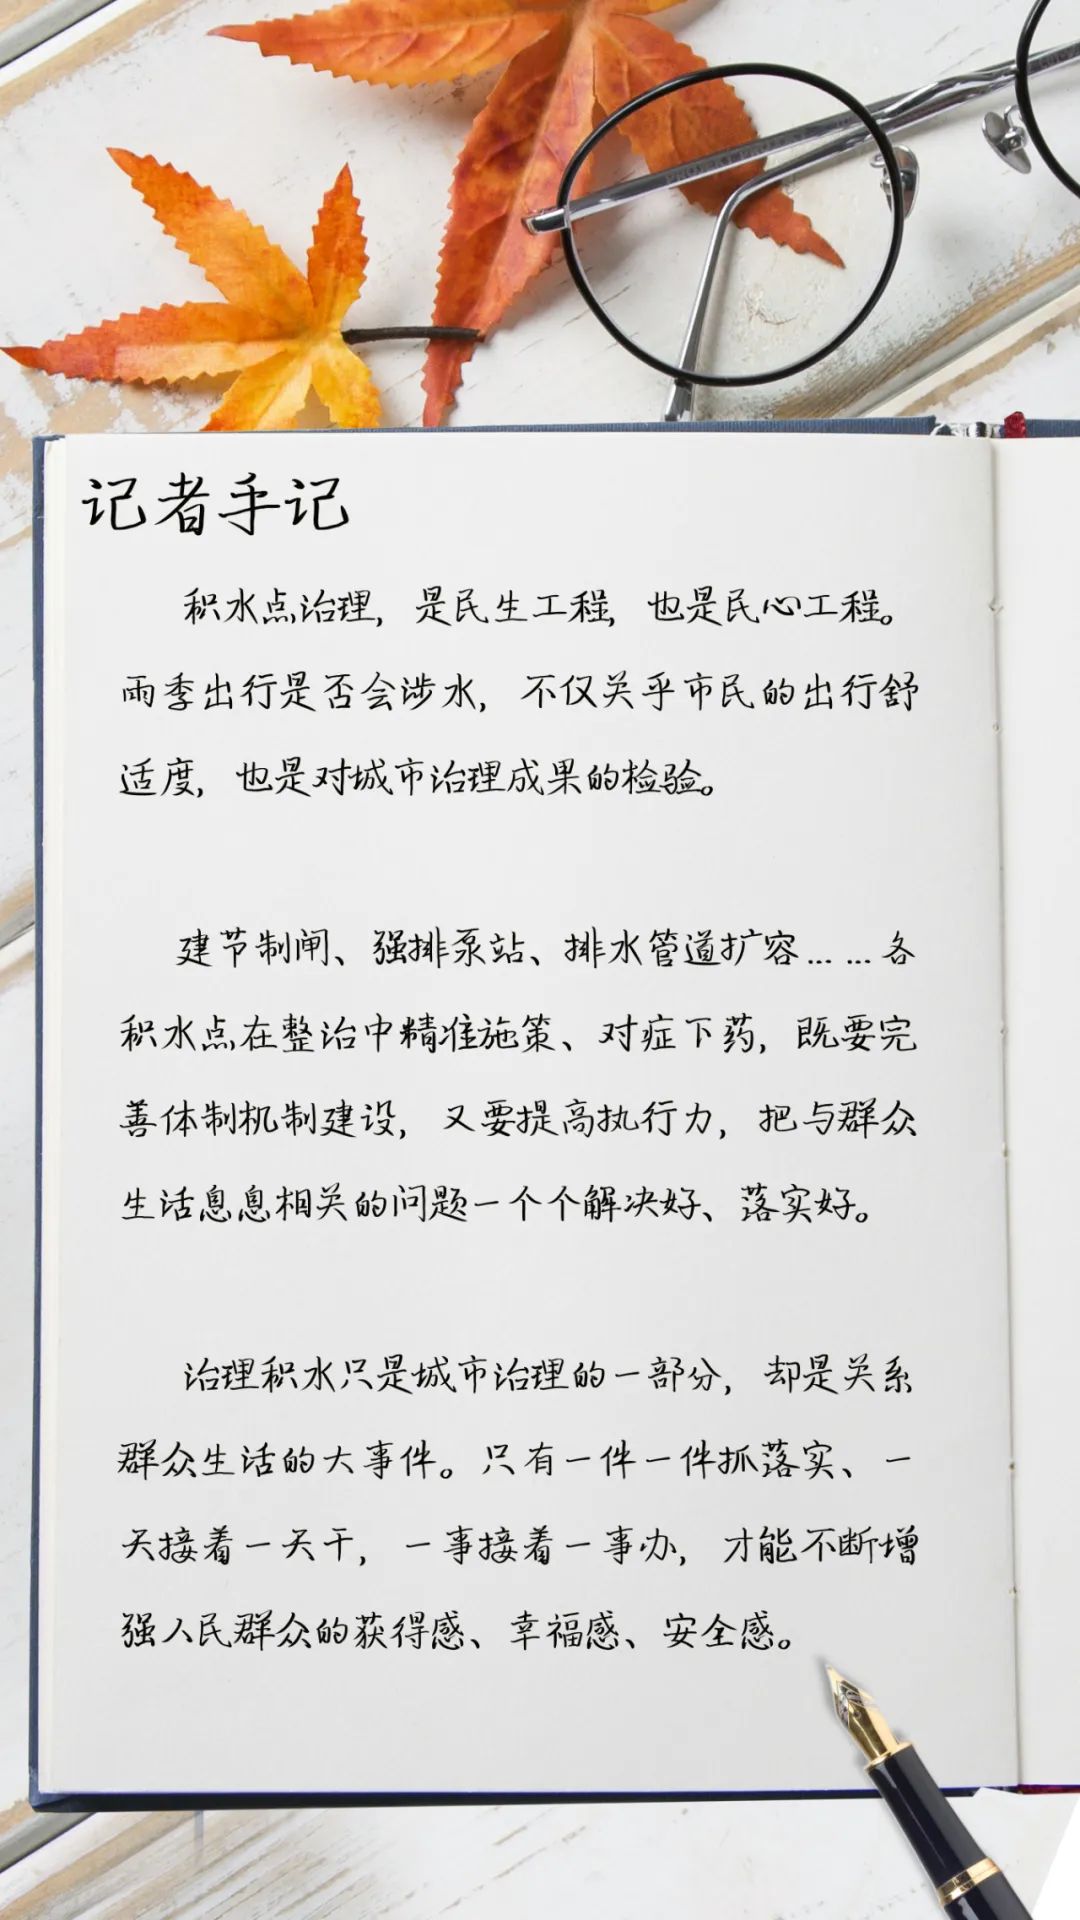 记者手记
积水点治理，是民生工程，也是民心工程。
雨季出行是否会涉水，不仅关乎市民的出行舒
适度，也是对城市治理成果的检验。
建节制闸、强排泵站、排水管道扩容……各
积水点在整治中精准施策、对症下药，既要完
善体制机制建设，又要提高执行力，把与群众
生活息息相关的问题一个个解决好、落实好。
治理积水只是城市治理的一部分，却是关系
群众生活的大事件。只有一件一件抓落实、一
天接着一天干，一事接着一事办，才能不断增
强人民群众的获得感、幸福感、安全感。